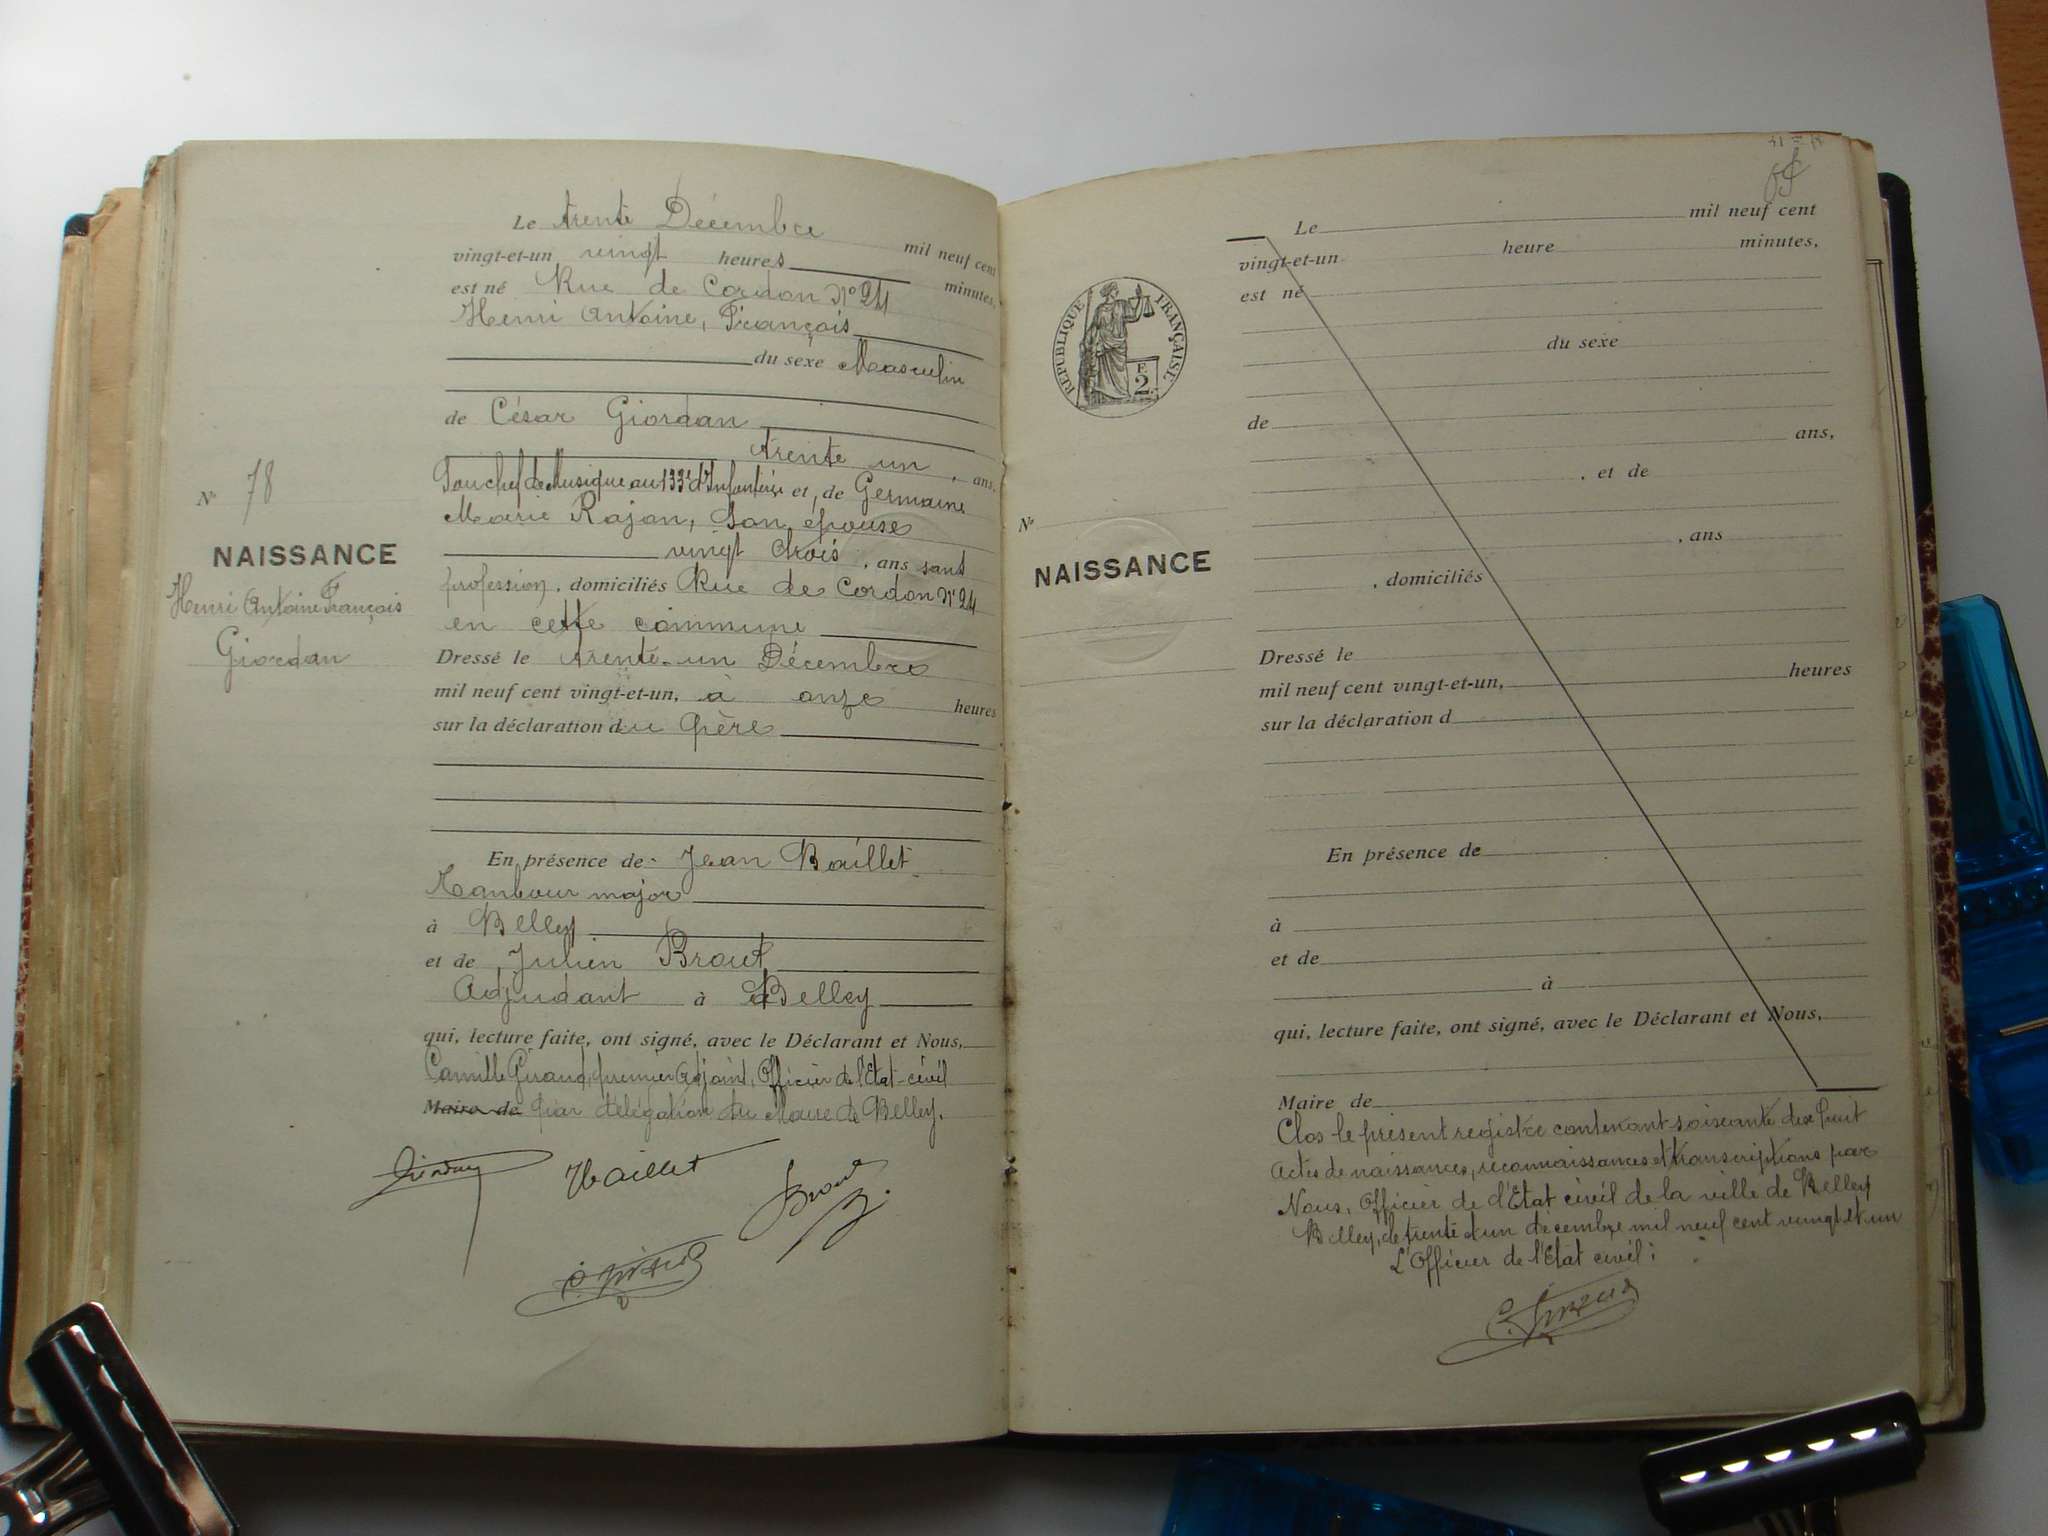 Le trente Décembre mil neuf cent
vingt-et-un vingt heures minutes,
est né Rue de Cordon N° 24
Henri Antoine, François
du sexe Masculin
de César Giordan
trente un, ans,
Sous chef de Musique au 133e d'Infanterie et, de Germaine
Marie Rajon, Son épouse
vingt trois, ans sans
profession, domiciliés Rue de Cordon N° 24
en cette commune
Dressé le trente-un Décembre
mil neuf cent vingt-et-un, à onze heures
sur la déclaration du Père
En présence de Jean Baillet
Tambour major
à Belley
et de Julien Brout
Adjudant à Belley
qui, lecture faite, ont signé, avec le Déclarant et Nous,
Camille Giraud, premier Adjoint, Officier de l'Etat-civil
Maire de par délégation du Maire de Belley.
Giordan
Baillet
Brout
C. Giraud
N° 78
NAISSANCE
Henri Antoine François
Giordan
Le mil neuf cent
vingt-et-un heure minutes,
est né
du sexe
de
ans,
, et de
, ans
, domiciliés
Dressé le
mil neuf cent vingt-et-un, heures
sur la déclaration d
En présence de
à
et de
à
qui, lecture faite, ont signé, avec le Déclarant et Nous,
Maire de
Clos le présent registre contenant soixante dix huit
actes de naissances, reconnaissances et transcriptions par
Nous, Officier de l'Etat civil de la ville de Belley
Belley, le trente et un decembre mil neuf cent vingt et un
L'Officier de l'Etat civil:
C. Giraud
RÉPUBLIQUE FRANÇAISE
F.
2
N°
NAISSANCE